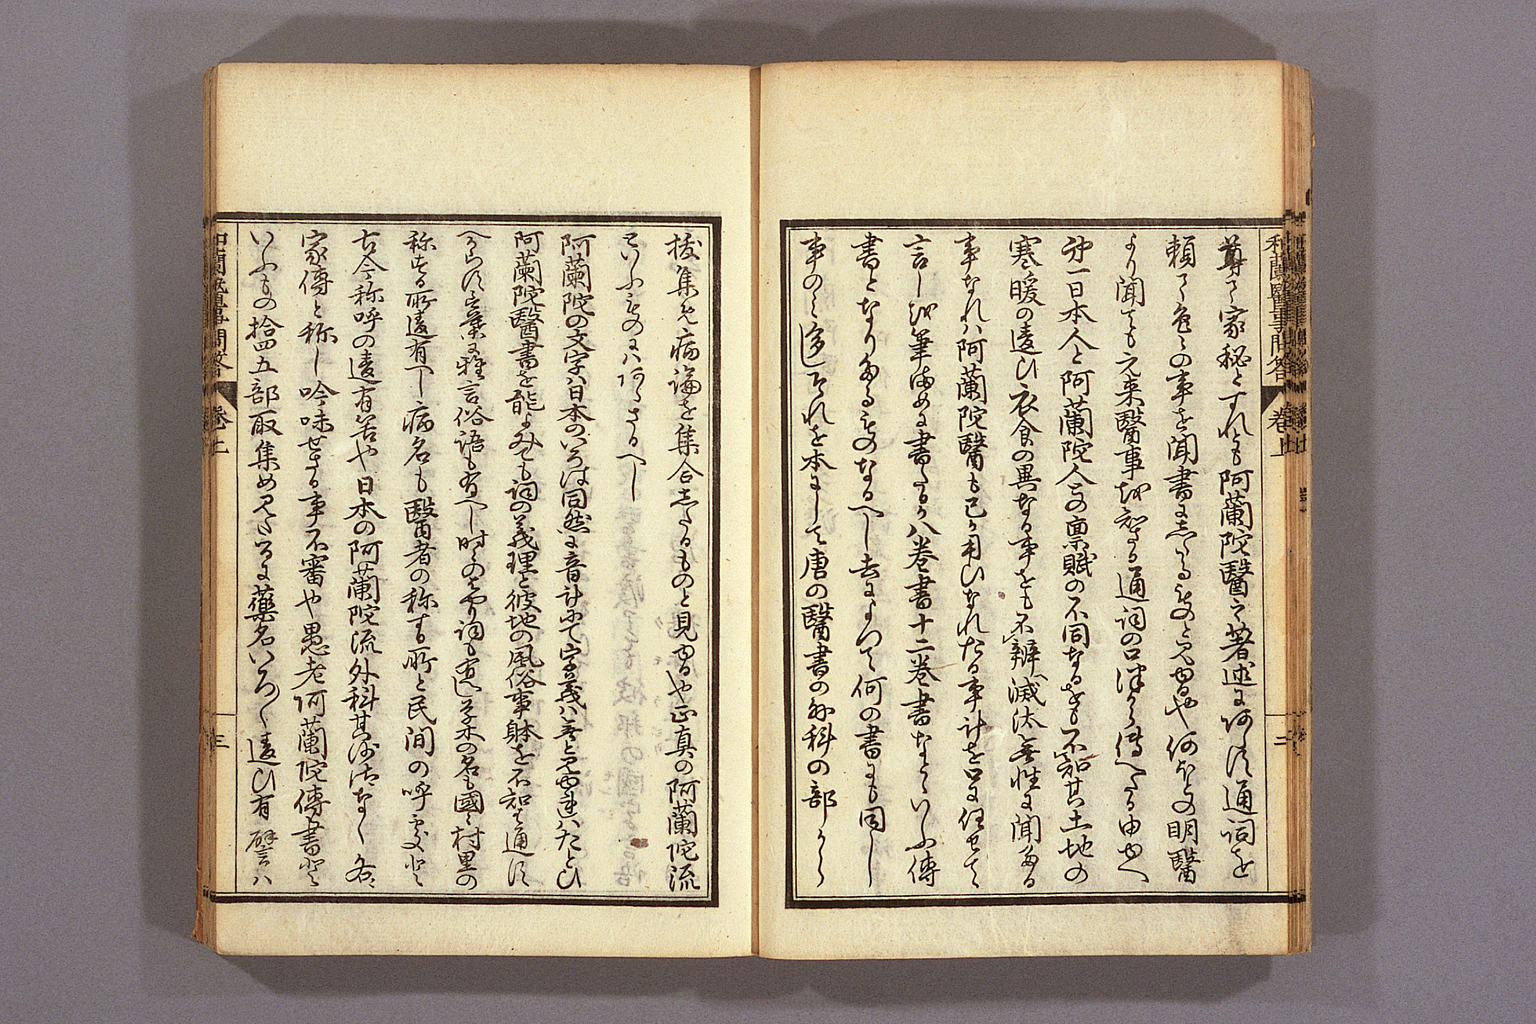 和蘭醫事問答 卷上 二
尊て家秘とすれとも阿蘭陀醫之著述にあらす通詞を
頼て色々の事を聞書にしたるものと見ゆるや何ほとの明醫
より聞ても元来醫事を知さる通詞の口よりつたへたる由ゆへ
第一日本人と阿蘭陀人との禀賦の不同なるをも不知其土地の
寒暖の違ひ衣食の異なる事をも不辨、減汰無性に聞たる
事なれハ阿蘭陀醫も己か用ひなれたる事計を口に任せて
言しを筆にまかせ書たるか八卷書十二卷書なといふ傳
書となりたるものなるへし去によつて何の書にも同し
事のミ多しそれを本にして唐の醫書の外科の部から
拔集め病論を集合したるものと見ゆるや正真の阿蘭陀流
といふものにハあるまるへし
阿蘭陀の文字ハ日本のいろは同然に音計にて字義ハ無と見や連ハたとひ
阿蘭陀醫書を能よみても詞の義理と彼地の風俗事躰を不知は通す
へからす言葉に雅言俗語も有へし時のはやり詞も違ひ草木の名も國々村里の
称する所違有へし病名も醫者の称する所と民間の呼處と
古今称呼の違有若や日本の阿蘭陀流外科其沙汰なく各
家傳と称し吟味せさる事不審や愚老阿蘭陀傳書と
いふもの拾四五部取集め見たるに藥名いろ〱違ひ有 譬ハ
和蘭醫事問答 卷上 三